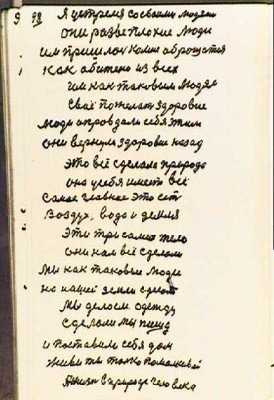 9 98 Я устремя со своими людями
они разве плохие люди
им пришлось ко мне оброщатся
как обижено из всех
им как таковым людям
свае пожелат здоровие
люди оправдали себя этим
они вернули здоровие назад
это всё сделала природа
она у себя имеет всё
самое главное это ест
воздух, вода и земля
эти три самих тело
они нам всё сделали
мы как таковые люди
на нашей земли
мы делаем одежду
сделали мы пищу
и поставили себя дом
живи ты толко помалкивай
в природе человека